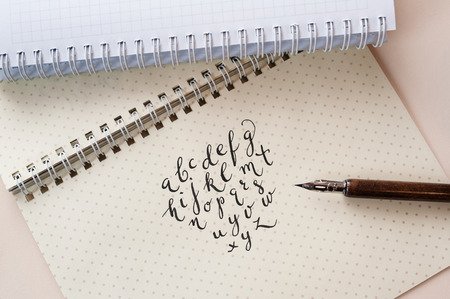 abcdefg
hijklmt
nopqrs
uvw
xyz